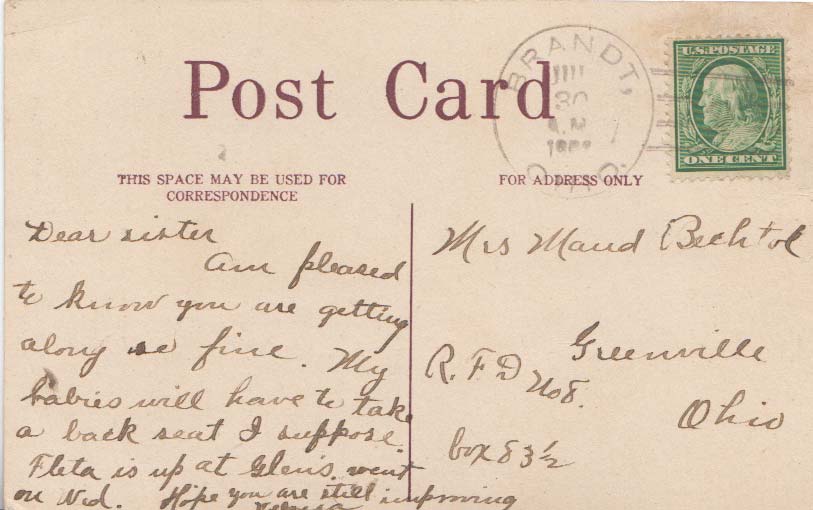 Post Card
BRANDT,
30
OHIO.
U.S. POSTAGE
ONE CENT
THIS SPACE MAY BE USED FOR
CORRESPONDENCE
FOR ADDRESS ONLY
Dear sister
Am pleased
to know you are getting
along so fine. My
babies will have to take
a back seat I suppose.
Fleta is up at Glen's. went
on Wed. Hope you are still improving
Mrs Maud Bechtol
Greenville
R.F.D No 8.
Ohio
box 83½